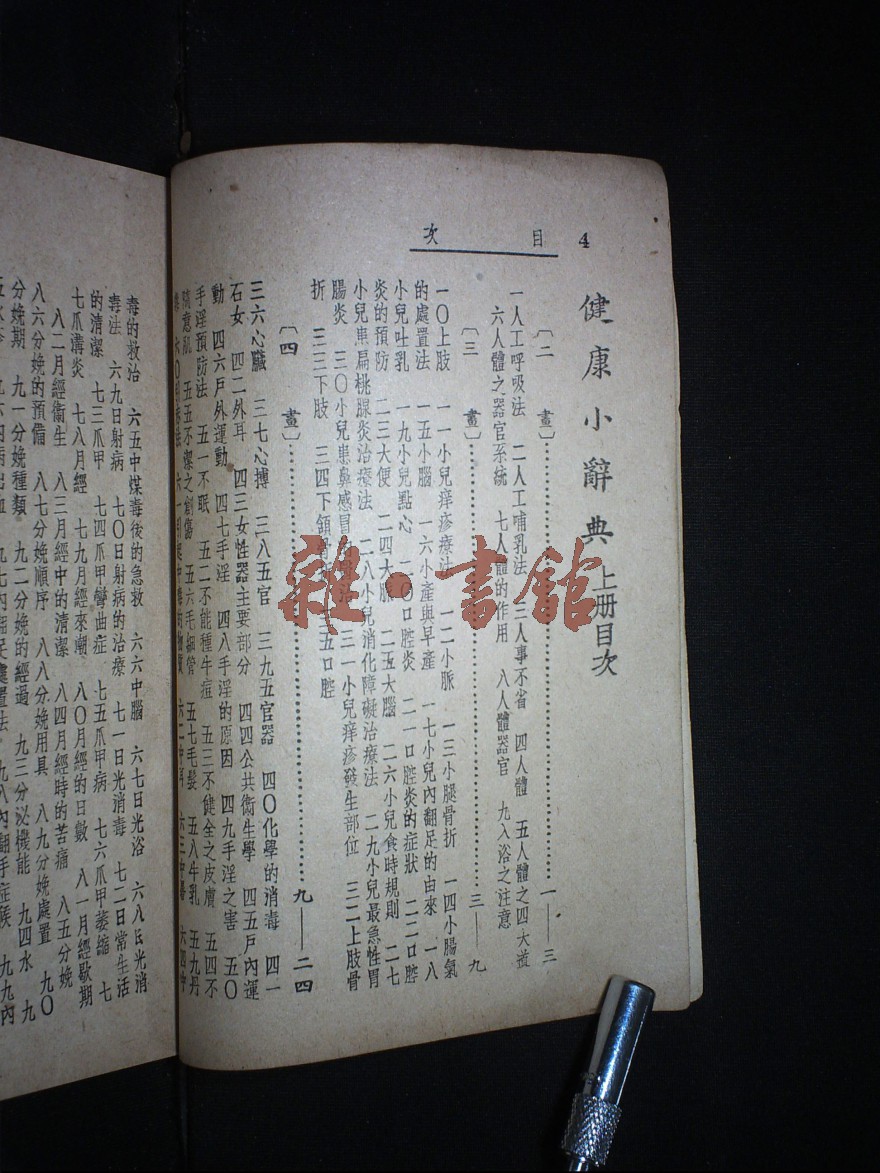 目次 4
健康小辭典 上册目次
〔二 畫〕……一——三
一人工呼吸法 二人工哺乳法 三人事不省 四人體 五人體之四大藏
六人體之器官系統 七人體的作用 八人體器官 九入浴之注意
〔三 畫〕……三——九
一〇上肢 一一小兒痒疹療法 一二小脈 一三小腿骨折 一四小腸氣
的處置法 一五小腦 一六小產與早產 一七小兒內翻足的由來 一八
小兒吐乳 一九小兒點心 二〇口腔炎 二一口腔炎的症狀 二二口腔
炎的預防 二三大便 二四大脈 二五大腦 二六小兒食時規則 二七
小兒患扁桃腺炎治療法 二八小兒消化障礙治療法 二九小兒最急性胃
腸炎 三〇小兒患鼻感冒 三一小兒痒疹發生部位 三二上肢骨
折 三三下肢 三四下頷骨 五口腔
〔四 畫〕……九——二四
三六心臟 三七心搏 三八五官 三九五官器 四〇化學的消毒 四一
石女 四二外耳 四三女性器主要部分 四四公共衛生學 四五戶內運
動 四六戶外運動 四七手淫 四八手淫的原因 四九手淫之害 五〇
手淫預防法 五一不眠 五二不能種牛痘 五三不健全之皮膚 五四不
隨意肌 五五不潔之創傷 五六毛細管 五七毛髮 五八牛乳 五九丹
六〇 六一 六二中耳 六三中暑 六四中
毒的救治 六五中煤毒後的急救 六六中腦 六七日光浴 六八日光消
毒法 六九日射病 七〇日射病的治療 七一日光消毒 七二日常生活
的清潔 七三爪甲 七四爪甲彎曲症 七五爪甲病 七六爪甲萎縮 七
七爪溝炎 七八月經 七九月經來潮 八〇月經的日數 八一月經歇期
八二月經衛生 八三月經中的清潔 八四月經時的苦痛 八五分娩
八六分娩的預備 八七分娩順序 八八分娩用具 八九分娩處置 九〇
分娩期 九一分娩種類 九二分娩的經過 九三分泌機能 九四水 九
九八內翻手症候 九九內
雜·書館